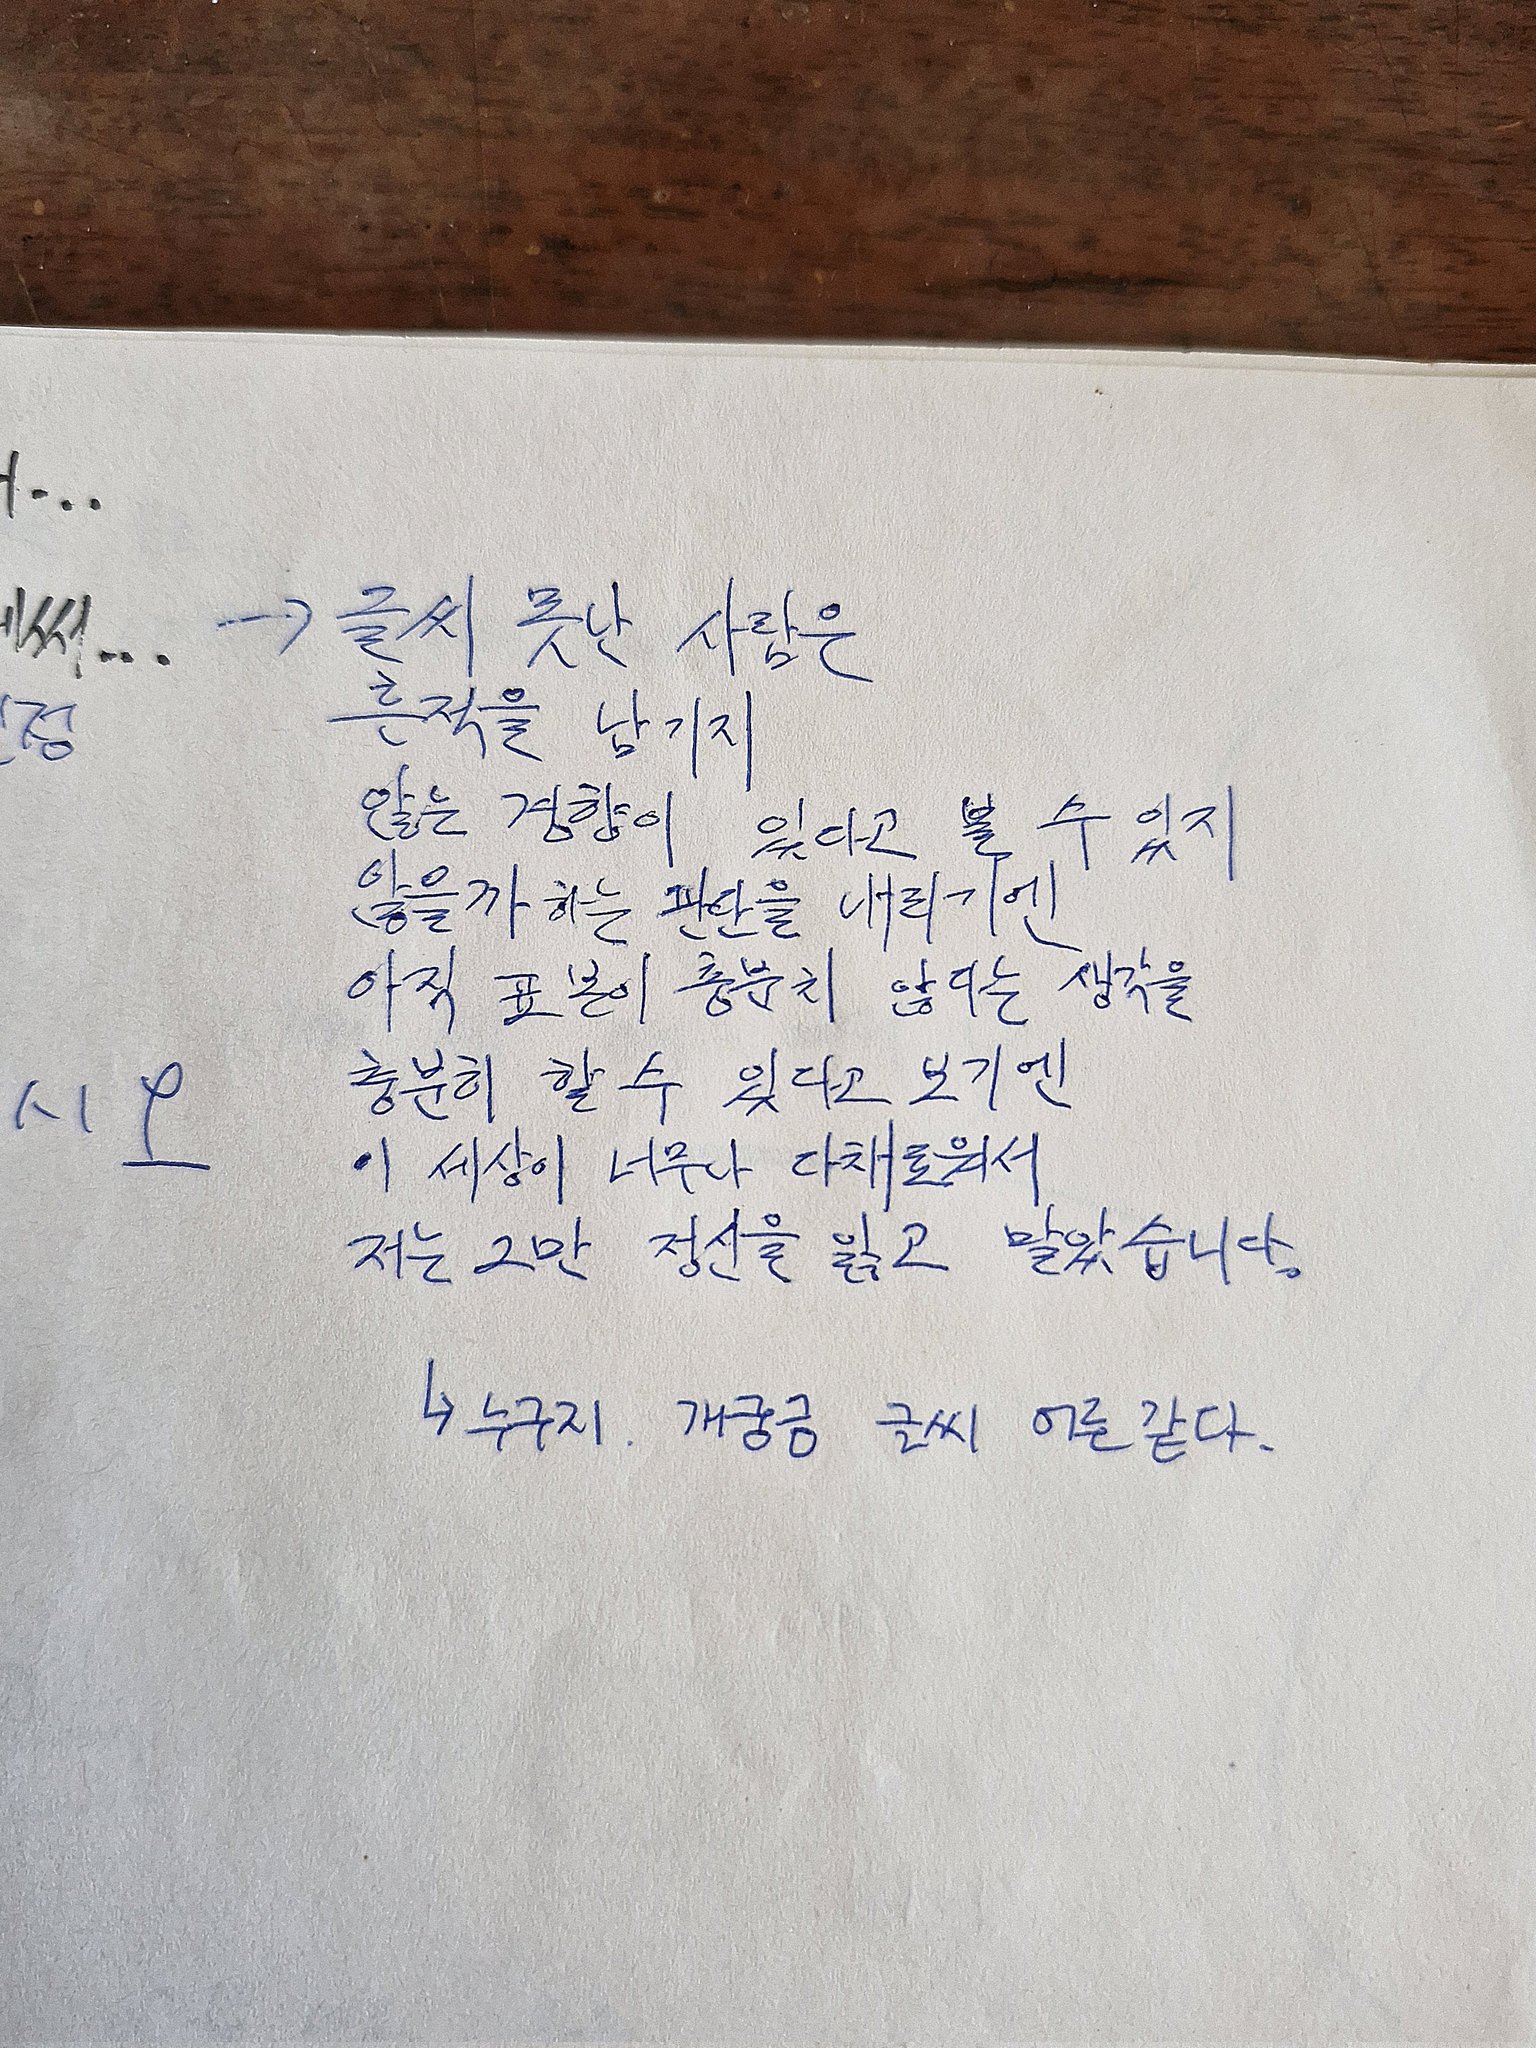 → 글씨 못난 사람은
흔적을 남기지
않는 경향이 있다고 볼 수 있지
않을까 하는 판단을 내리기엔
아직 표본이 충분치 않다는 생각을
충분히 할 수 있다고 보기엔
이 세상이 너무나 다채로워서
저는 그만 정신을 잃고 말았습니다.
↳ 누구지. 개궁금 글씨 어른같다.